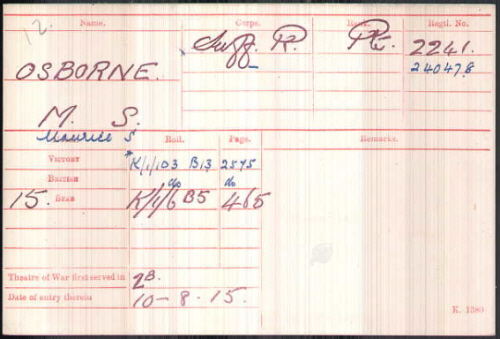 12. Name. Corps. Rank. Regtl. No.
Suff. R. Pte. 2241.
OSBORNE. 240478
M. S.
Maurice S Roll. Page. Remarks.
Victory *K/1/103 B13 2575
British do do
15. Star K/1/6 B5 465
Theatre of War first served in 2B.
Date of entry therein 10-8-15.
K. 1380